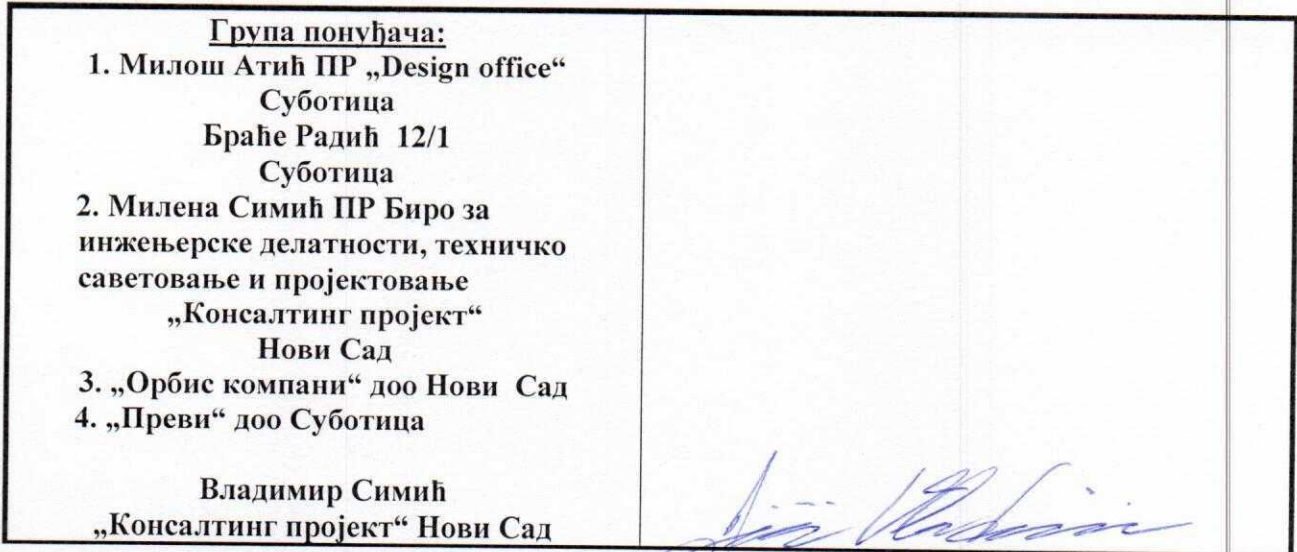 Група понуђача:
1. Милош Атић ПР „Design office“
Суботица
Браће Радић 12/1
Суботица
2. Милена Симић ПР Биро за
инжењерске делатности, техничко
саветовање и пројектовање
„Консалтинг пројект“
Нови Сад
3. „Орбис компани“ доо Нови Сад
4. „Преви“ доо Суботица
Владимир Симић
„Консалтинг пројект“ Нови Сад